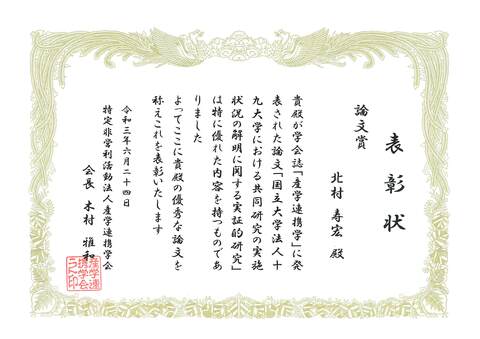 表彰状
論文賞
北村 寿宏 殿
貴殿が学会誌「産学連携学」に発
表された論文「国立大学法人十
九大学における共同研究の実施
状況の解明に関する実証的研究」
は特に優れた内容を持つものであ
りました
よってここに貴殿の優秀な論文を
称えこれを表彰いたします
令和三年六月二十四日
特定非営利活動法人産学連携学会
会長 木村 雅和
産学連
携学会